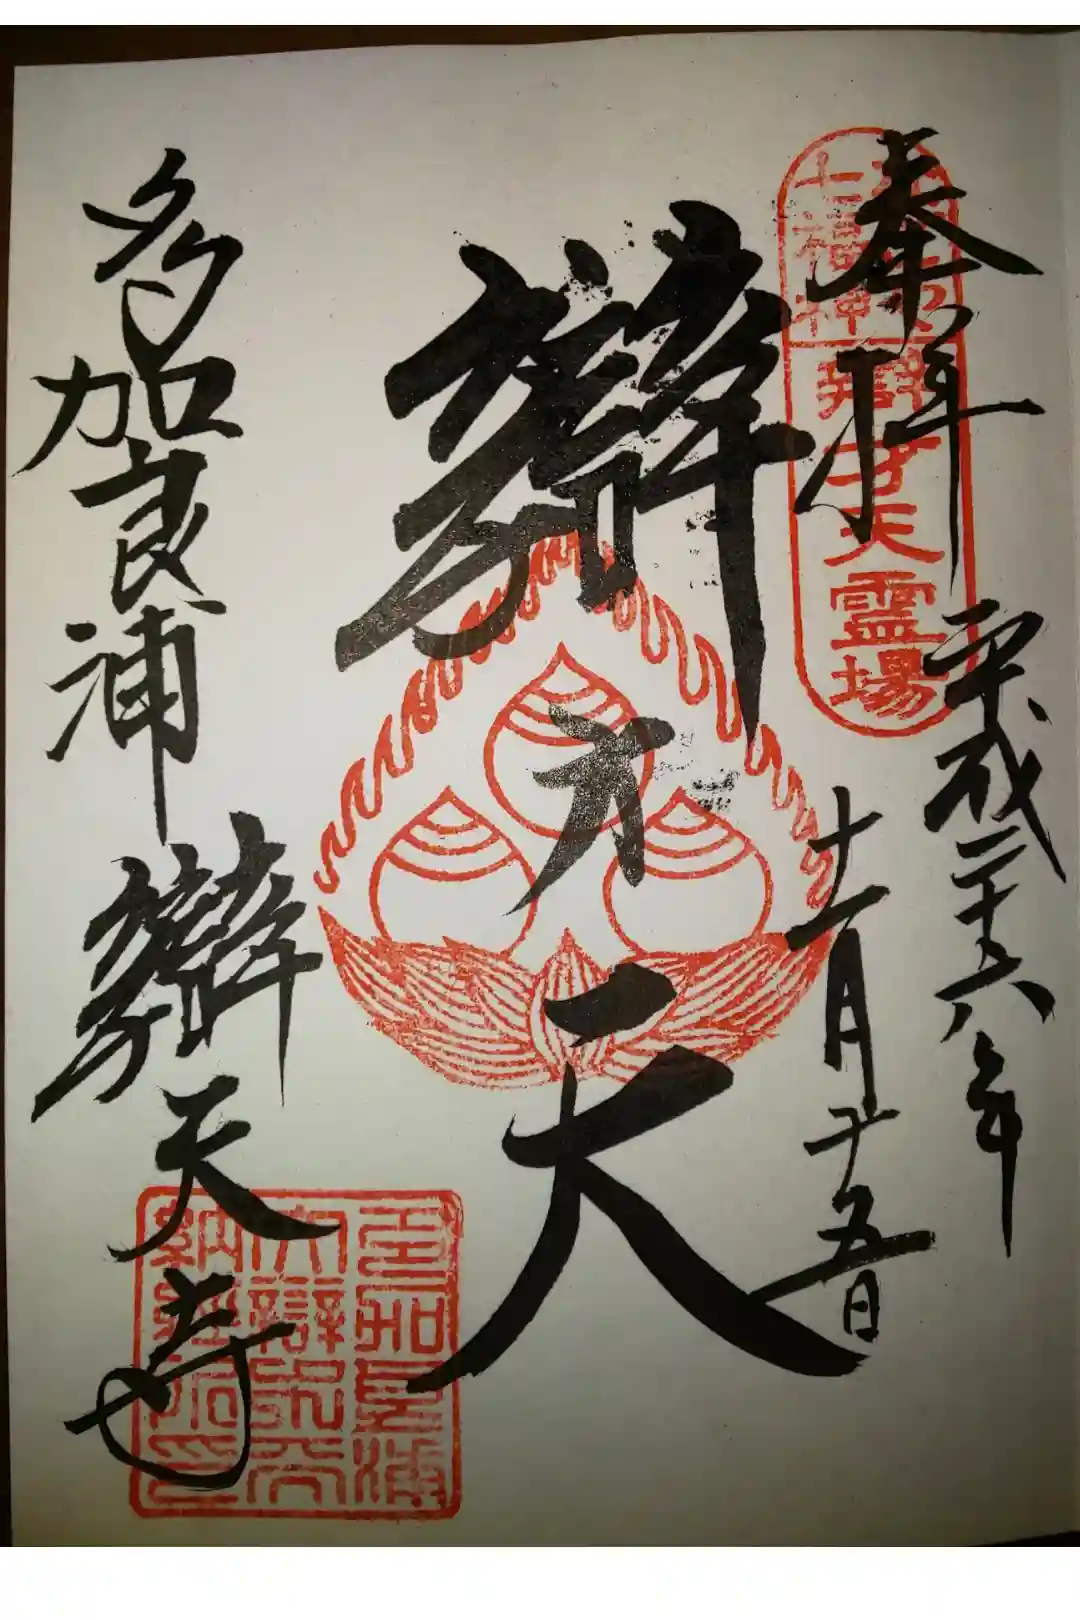 奉拝
七福神
辨才天霊場
平成二十六年
十一月二十五日
辨才天
多加良浦
辨天寺